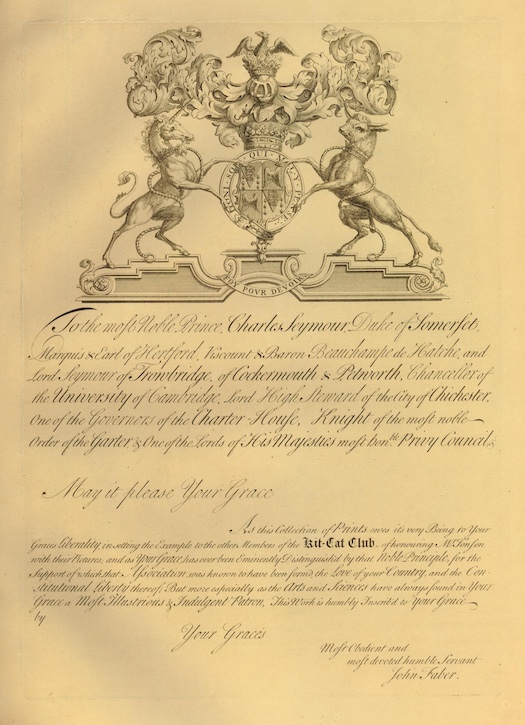 HONI SOIT QUI MAL Y PENSE
FOY POVR DEVOIR
To the most Noble Prince, Charles Seymour Duke of Somerset,
Marquis & Earl of Hertford, Viscount & Baron Beauchampe de Hatche, and
Lord Seymour of Trowbridge, of Cockermouth & Petworth, Chancellor of
the University of Cambridge, Lord High Steward of the City of Chichester,
One of the Governors of the Charter-House, Knight of the most noble
Order of the Garter & One of the Lords of His Majesties most hon.ble Privy Council,
May it please Your Grace
As this Collection of Prints owes its very Being to Your
Graces Liberality, in setting the Example to the other Members of the Kit-Cat Club, of honouring Mr. Tonson
with their Pictures, and as Your Grace has ever been Eminently Distinguish'd by that Noble Principle, for the
Support of which that Association was known to have been form'd, the Love of your Country, and the Con-
stitutional Liberty thereof; But more especially as the Arts and Sciences have always found in Your
Grace a Most Illustrious & Indulgent Patron, This Work is humbly Inscrib'd to Your Grace
by
Your Graces
Most Obedient and
most devoted humble Servant
John Faber.